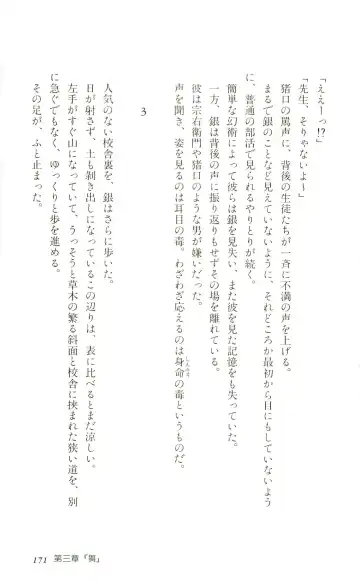 「ええーっ!?」
「先生、そりゃないよ〜」
猪口の罵声に、背後の生徒たちが一斉に不満の声を上げる。
まるで銀のことなど見えていないように、それどころか最初から目にもしていないよう
に、普通の部活で見られるやりとりが続く。
簡単な幻術によって彼らは銀を見失い、また彼を見た記憶をも失っていた。
一方、銀は背後の声に振り返りもせずその場を離れている。
彼は宗右衛門や猪口のような男が嫌いだった。
声を聞き、姿を見るのは耳目の毒。わざわざ応えるのは身命の毒というものだ。
3
人気のない校舎裏を、銀はさらに歩いた。
日が射さず、土も剝き出しになっているこの辺りは、表に比べるとまだ涼しい。
左手がすぐ山になっていて、うっそうと草木の繁る斜面と校舎に挟まれた狭い道を、別
に急ぐでもなく、ゆっくりと歩を進める。
その足が、ふと止まった。
171 第三章『獨』